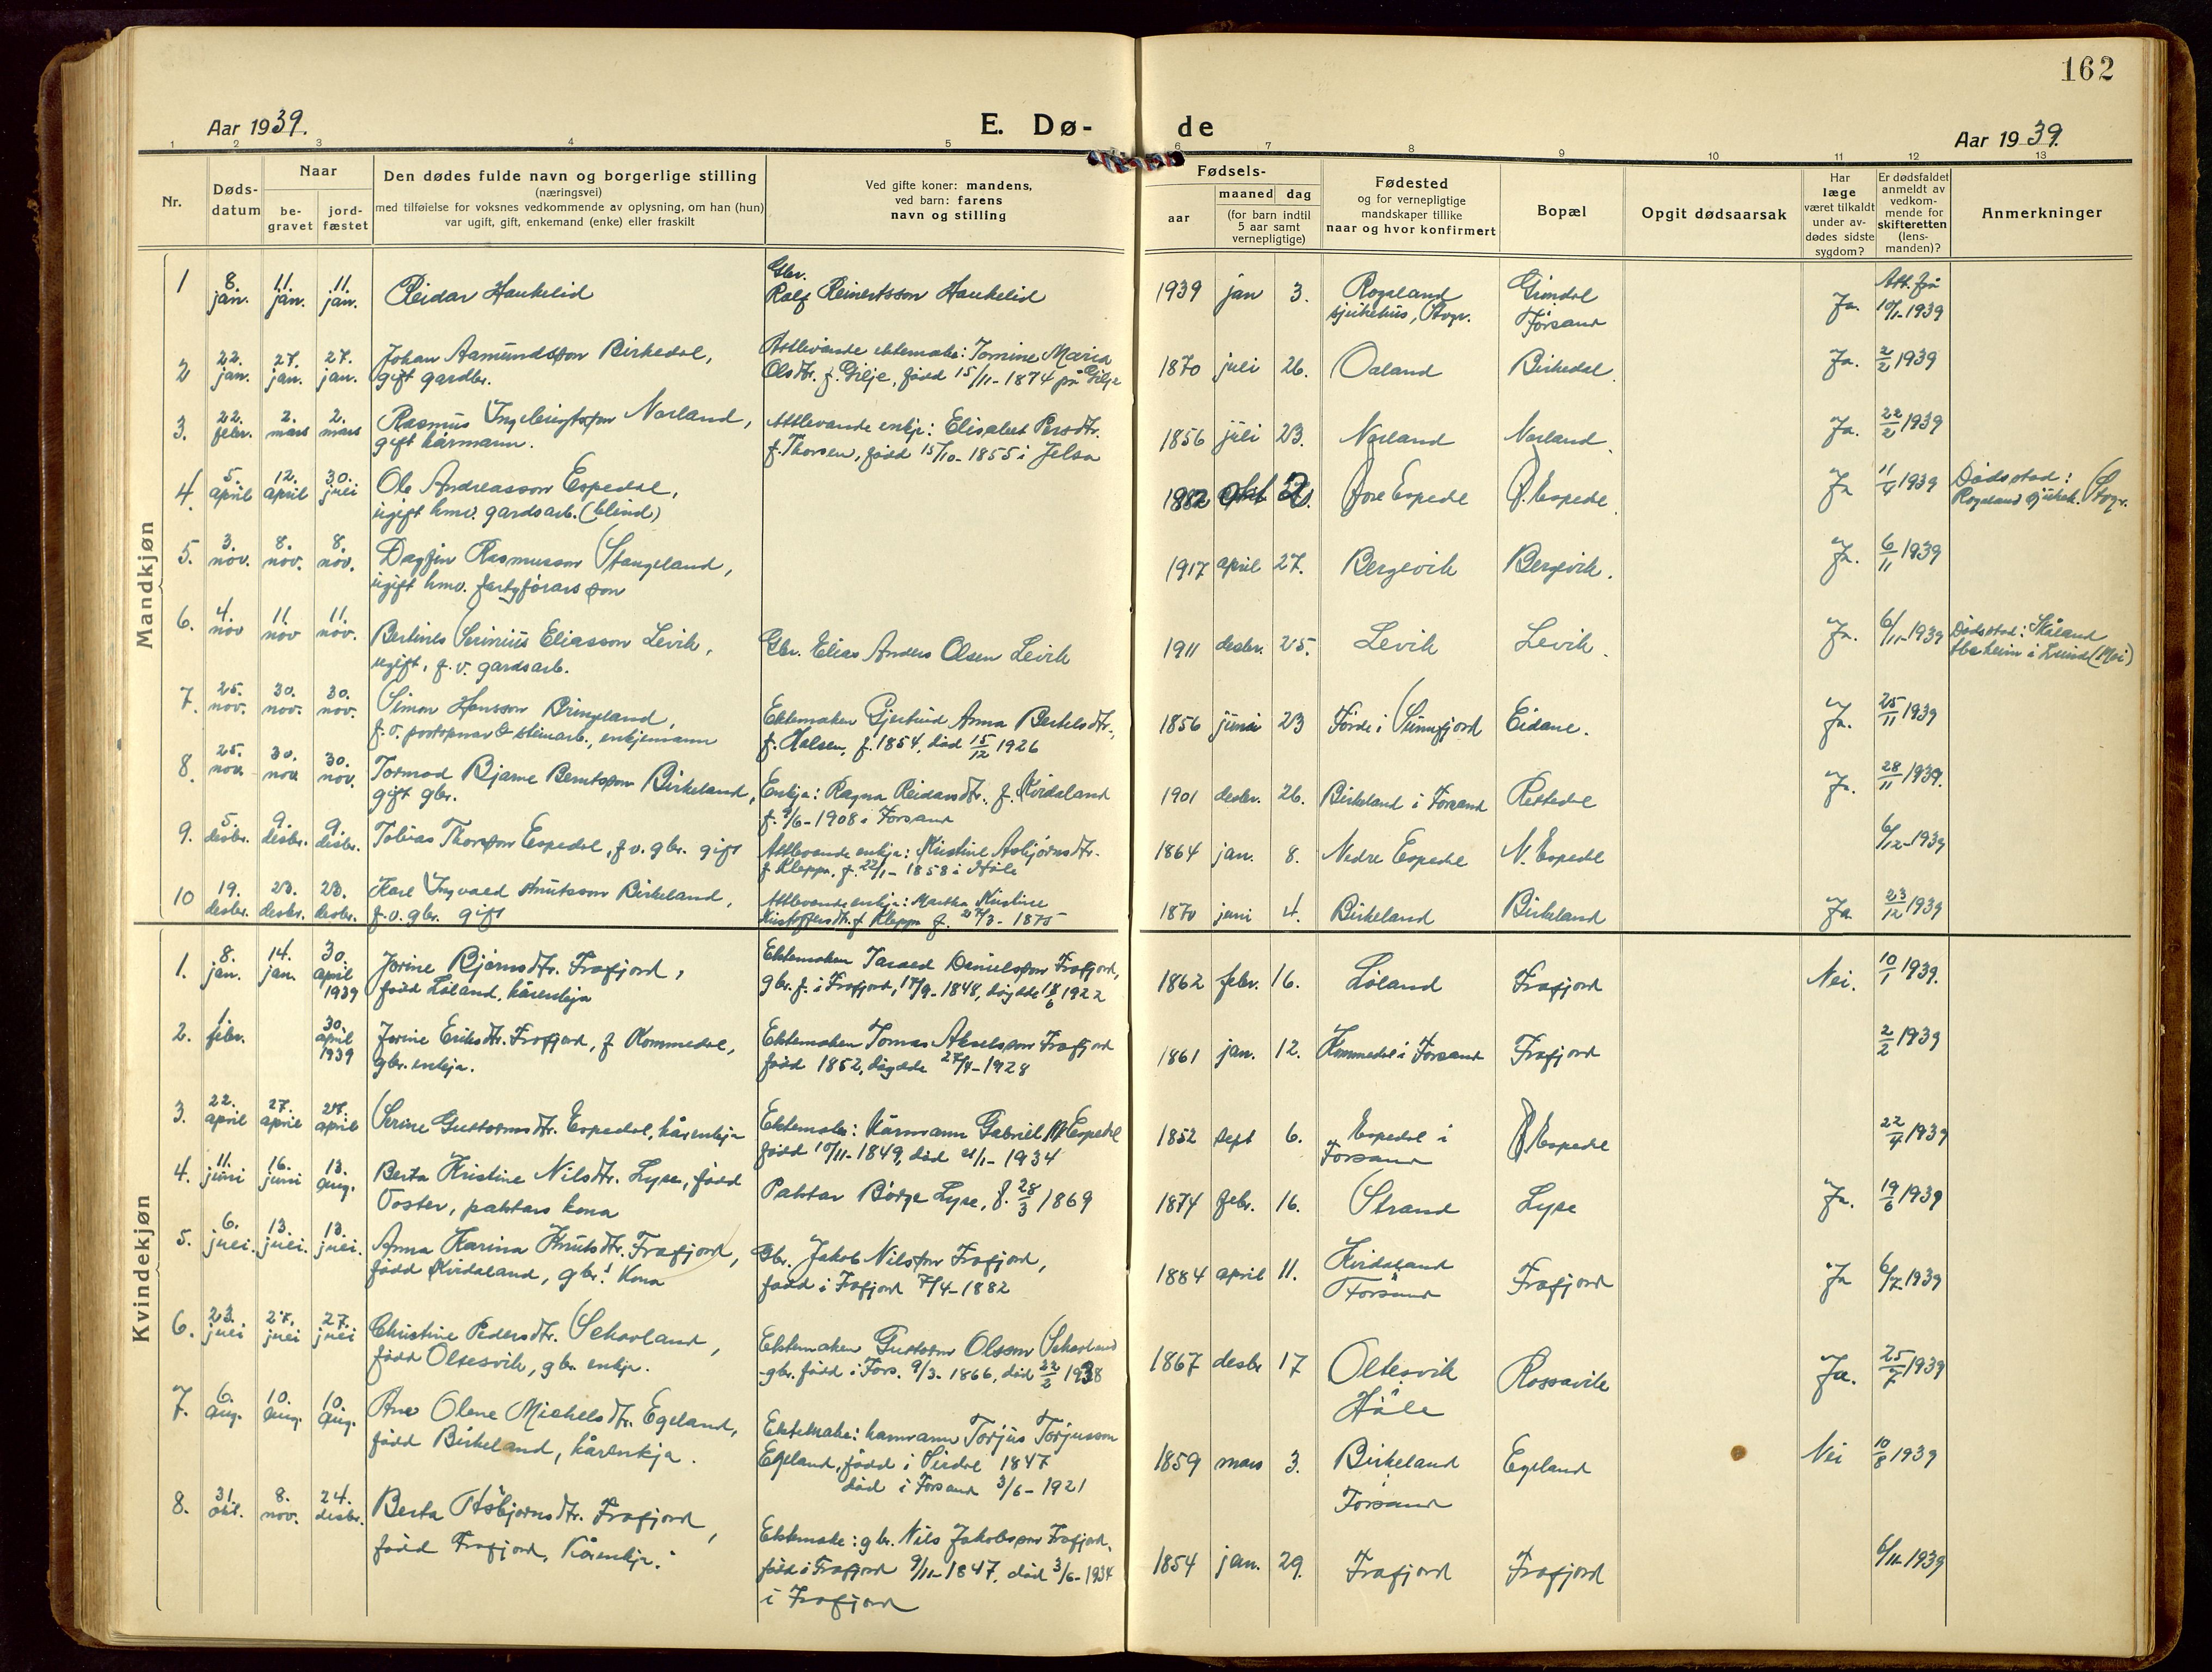 162
Aar 1939.
E. Dø-
de
Aar 1939.
1 2 3 4 5 6 7 8 9 10 11 12 13
Nr.
Døds-
datum
Naar
be-
gravet
jord-
fæstet
Den dødes fulde navn og borgerlige stilling
(næringsvei)
med tilføielse for voksnes vedkommende av oplysning, om han (hun)
var ugift, gift, enkemand (enke) eller fraskilt
Ved gifte koner: mandens,
ved barn: farens
navn og stilling
Fødsels-
aar
maaned dag
(for barn indtil
5 aar samt
vernepligtige)
Fødested
og for vernepligtige
mandskaper tillike
naar og hvor konfirmert
Bopæl
Opgit dødsaarsak
Har
læge
været tilkaldt
under av-
dødes sidste
sygdom?
Er dødsfaldet
anmeldt av
vedkom-
mende for
skifteretten
(lens-
manden)?
Anmerkninger
Mandkjøn
1 8. jan. 11. jan. 11. jan.
Reidar Haukelid
Gbr.
Rolf Reinertsson Haukelid
1939 jan 3.
Rogaland
sjukehus, Stvgr.
Grindal
Forsand
Ja.
Att. frå
10/1-1939
2 22. jan. 27. jan. 27. jan.
Johan Aamundsson Birkedal,
gift gardbr.
Attlevande ektemake: Tomine Maria
Olsdtr. f. Gilje, fødd 15/11-1874 på Gilje
1870 juli 26.
Oaland
Birkedal.
Ja.
2/2 1939
3. 22. febr. 2. mars 2. mars
Rasmus Ingebrigtsson Norland,
gift kårmann.
Attlevande enkje: Elisabet Persdtr.
f. Thorsen, fødd 15/10-1855 i Jelsa
1856 juli 23.
Norland
Norland.
Ja.
22/2 1939
4. 5. april 12. april 30. juli
Ole Andreasson Espedal,
ugift hmv. gardsarb. (blind)
1882 okt 2.
Espedal
Espedal.
Ja
11/4 1939
Dødsstad:
Rogaland sjukeh. Stvgr.
5. 3. nov. 8. nov. 8. nov.
Dagfin Rasmusson Stangeland,
ugift hmv. fartyførars son
1917 april 27.
Bergevik
Bergevik.
Ja.
6/11 1939
6. 4. nov 11. nov 11. nov.
Bertines Serinius Eliasson Levik,
ugift, f. v. gardsarb.
Gbr. Elias Anders Olsen Levik
1911 desbr. 25.
Levik
Levik.
Ja.
6/11-1939
Dødsstad: Skåland
i Lunde (Moi)
7. 25. nov. 30. nov. 30. nov.
Simon Hansson Bringeland,
f. v. postopnar & steinarb., enkjemann
Ektemaken Gjertrud Anna Bertelsdtr.,
f. Halsen, f. 1854, død 15/12 1926
1856 juni 23
Førde i Sunnfjord
Eidane.
Ja.
25/11 1939
8. 25. nov. 30. nov. 30. nov.
Tormod Bjarne Berntsson Birkeland,
gift gbr.
Enkja: Ragna Reidarsdtr. f. Kvidaland
f. 9/6-1908 i Forsand
1901 desbr. 26.
Birkeland i Forsand
Rettedal
Ja.
28/11 1939.
9. 5. desbr. 9. desbr. 9. desbr.
Tobias Thorsson Espedal, f. v. gbr. gift
Attlevande enkje: Kristine Asbjørnsdtr.
f. Kleppa, f. 22/1-1858 i Høle
1864 jan. 8.
Nedre Espedal
N. Espedal
6/12-1939
10 19. desbr. 23. desbr. 23. desbr.
Karl Ingvald Knutsson Birkeland,
f. v. gbr. gift
Attlevande enkje: Martha Kristine
Kristoffersdtr. f. Kleppa f. 27/3-1875
1870 juni 4.
Birkeland
Birkeland
Ja
23/12 1939
Kvindekjøn
1. 8. jan. 14. jan. 30. april 1939
Jorine Bjørnsdtr. Frafjord,
fødd Løland, kårenkja
Ektemaken Tarald Danielsson Frafjord,
gbr. f. i Frafjord, 17/9-1848, døydde 18/6 1922
1862 febr. 16.
Løland
Frafjord
Nei.
10/1 1939.
2. 1. febr. 30. april 1939
Jorine Eriksdtr. Frafjord, f Kommedal,
gbr. enkja.
Ektemaken Tomas Akselsson Frafjord
fødd 1852, døydde 27/4-1928
1861 jan. 12.
Kommedal i Forsand
Frafjord
2/2 1939
3. 22. april 27. april 27. april
Serine Guttormsdtr. Espedal, kårenkje
Ektemake: Kårmann Gabriel M Espedal
fødd 10/11-1849, død 21/1-1934
1852 sept 6.
Espedal i
Forsand
Espedal
22/4 1939
4. 11. juni 16. juni 13. aug.
Berta Kristine Nilsdtr. Lyse, fødd
Voster, paktars kona
Paktar Børge Lyse, f. 28/3 1869
1874 febr. 16.
Strand
Lyse
Ja.
19/6 1939
5. 6. juli. 13. juli. 13. juli.
Anna Karina Knutsdtr. Frafjord,
fødd Kvidaland, gbr.s kona
Gbr. Jakob Nilsson Frafjord,
fødd i Frafjord 7/4-1882
1884 april 11.
Kvidaland
Forsand
Frafjord
Ja
6/7 1939
6. 23. juli 27. juli 27. juli
Christine Pedersdtr. Sehorland,
fødd Oltesvik, gbr. enkje.
Ektemaken Guttorm Olsson Sehorland
gbr. fødd i Fors. 9/3-1866, død 22/2 1938
1867 desbr 17
Oltesvik
Høle
Rossavik
Ja.
25/7 1939
7. 6. aug. 10. aug. 10. aug.
Ane Olene Mickelsdtr. Egeland,
fødd Birkeland, kårenkja.
Ektemake: kårmann Torjus Torjusson
Egeland, fødd i Sirdal 1847
død i Forsand 3/6-1921
1859 mars 3.
Birkeland
i
Forsand
Egeland
Nei
10/8 1939
8. 31. okt. 8. nov. 24. desbr.
Berta Asbjørnsdtr. Frafjord,
fødd Frafjord, Kårenkje.
Ektemake: gbr. Nils Jakobsson Frafjord,
fødd i Frafjord 9/11-1847, død 3/6-1934
i Frafjord
1854 jan. 29.
Frafjord
Frafjord
6/11-1939